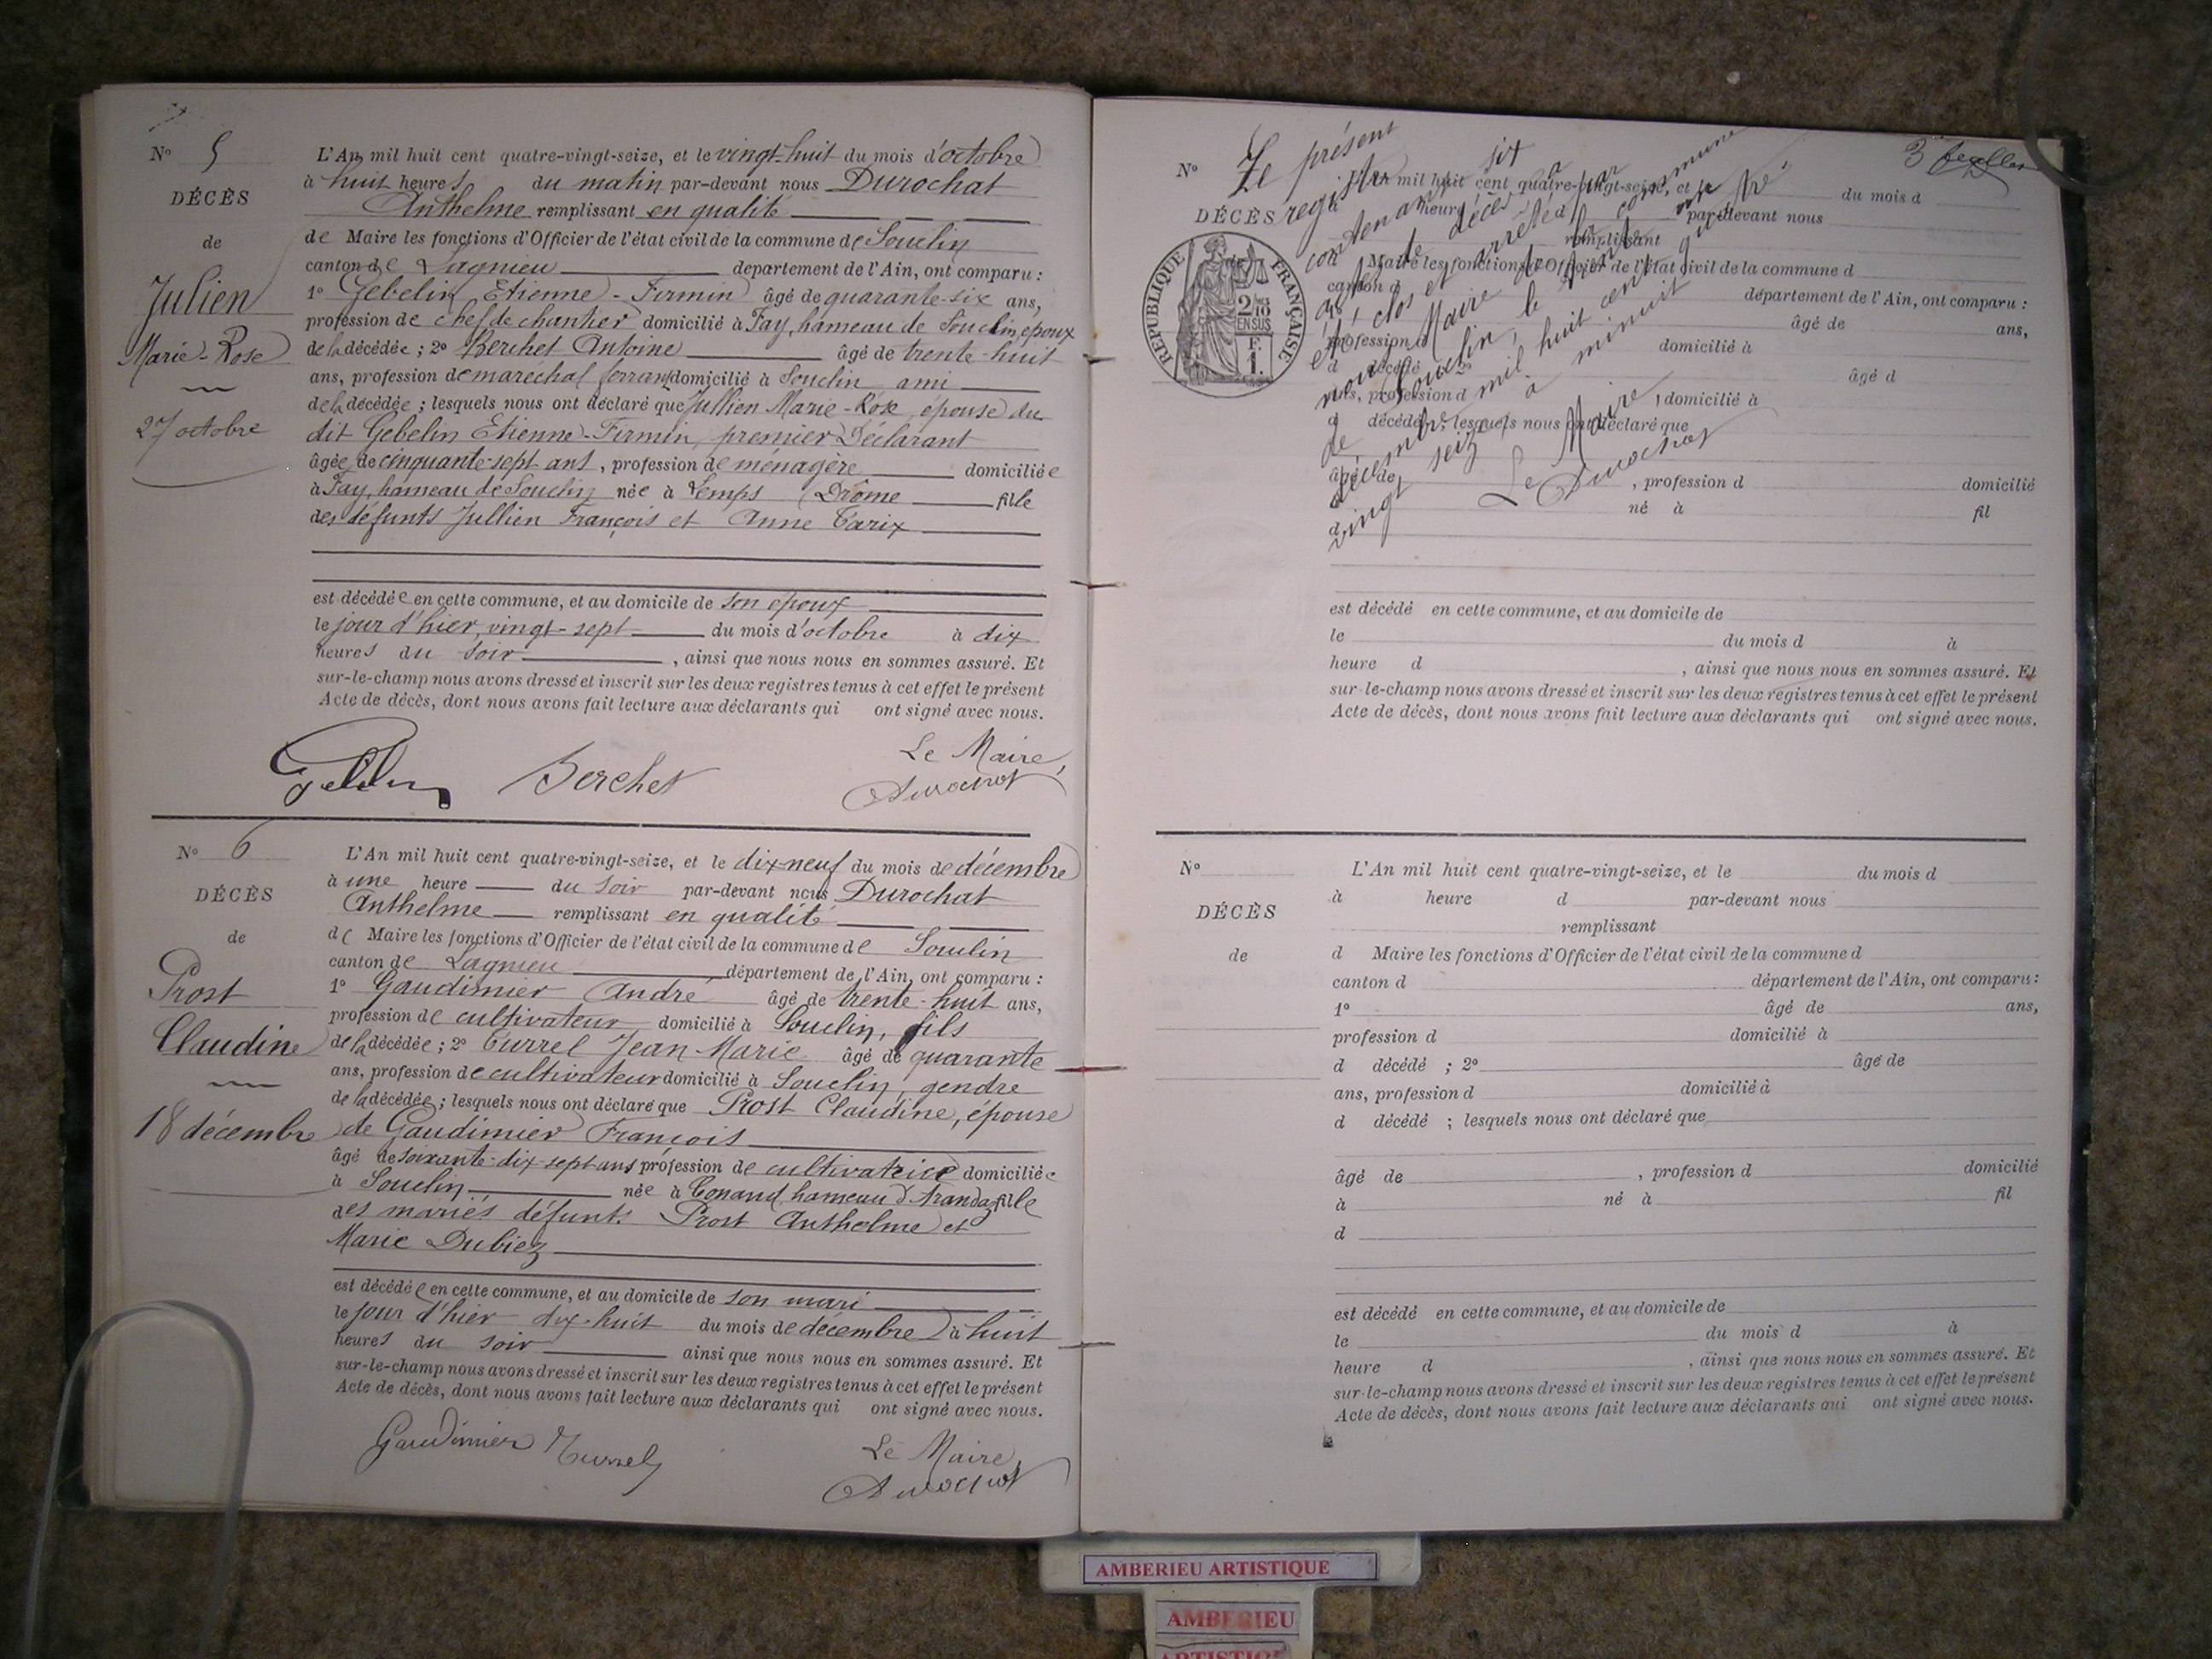 N° 5
DÉCÈS
de
Julien
Marie-Rose
27 octobre
L'An mil huit cent quatre-vingt-seize, et le vingt-huit du mois d'octobre
à huit heures du matin par-devant nous Durochat
Anthelme remplissant en qualité
de Maire les fonctions d'Officier de l'état civil de la commune de Souclin
canton de Lagnieu département de l'Ain, ont comparu :
1° Gebelin Etienne-Firmin âgé de quarante-six ans,
profession de chef de chantier domicilié à Fay, hameau de Souclin, époux
de la décédée ; 2° Berchet Antoine âgé de trente-huit
ans, profession de marechal ferrant domicilié à Souclin ami
de la décédée ; lesquels nous ont déclaré que Jullien Marie-Rose, épouse du
dit Gebelin Etienne-Firmin, premier Déclarant
âgée de cinquante-sept ans, profession de ménagère domiciliée
à Fay, hameau de Souclin née à Lemps (Drôme fille
des défunts Jullien François et Anne Tarix
est décédée en cette commune, et au domicile de son époux
le jour d'hier, vingt-sept du mois d'octobre à dix
heures du soir, ainsi que nous nous en sommes assuré. Et
sur-le-champ nous avons dressé et inscrit sur les deux registres tenus à cet effet le présent
Acte de décès, dont nous avons fait lecture aux déclarants qui ont signé avec nous.
Gebelin Berchet Le Maire,
Durochat
N° 6
DÉCÈS
de
Prost
Claudine
18 décembre
L'An mil huit cent quatre-vingt-seize, et le dix-neuf du mois de décembre
à une heure du soir par-devant nous Durochat
Anthelme remplissant en qualité
de Maire les fonctions d'Officier de l'état civil de la commune de Souclin
canton de Lagnieu département de l'Ain, ont comparu :
1° Gaudimier André âgé de trente-huit ans,
profession de cultivateur domicilié à Souclin, fils
de la décédée ; 2° Turrel Jean-Marie âgé de quarante
ans, profession de cultivateur domicilié à Souclin, gendre
de la décédée ; lesquels nous ont déclaré que Prost Claudine, épouse
de Gaudimier François
âgé de soixante-dix-sept ans profession de cultivatrice domiciliée
à Souclin née à Conand hameau d'Aranda fille
des mariés défunts Prost Anthelme et
Marie Dubiez
est décédée en cette commune, et au domicile de son mari
le jour d'hier dix-huit du mois de décembre à huit
heures du soir ainsi que nous nous en sommes assuré. Et
sur-le-champ nous avons dressé et inscrit sur les deux registres tenus à cet effet le présent
Acte de décès, dont nous avons fait lecture aux déclarants qui ont signé avec nous.
Gaudimier Turrel Le Maire,
Durochat
Le présent
registre
contenant six
actes de décès a
été clos et arrêté par
nous Maire de la commune
de Souclin, le trente un
décembre mil huit cent quatre
vingt seize à minuit
Le Maire,
Durochat
N°
DÉCÈS
RÉPUBLIQUE FRANÇAISE
2/10
EN SUS
F.
1.
L'An mil huit cent quatre-vingt-seize, et le du mois d
à heure par-devant nous
remplissant
d Maire les fonctions d'Officier de l'état civil de la commune d
canton d département de l'Ain, ont comparu :
âgé de ans,
profession d domicilié à
d décédé 2° âgé d
ans, profession d domicilié à
d décédé ; lesquels nous ont déclaré que
âgé de , profession d domicilié
né à fil
d
est décédé en cette commune, et au domicile de
le du mois d à
heure d , ainsi que nous nous en sommes assuré. Et
sur-le-champ nous avons dressé et inscrit sur les deux registres tenus à cet effet le présent
Acte de décès, dont nous avons fait lecture aux déclarants qui ont signé avec nous.
N°
DÉCÈS
de
L'An mil huit cent quatre-vingt-seize, et le du mois d
à heure d par-devant nous
remplissant
d Maire les fonctions d'Officier de l'état civil de la commune d
canton d département de l'Ain, ont comparu :
1° âgé de ans,
profession d domicilié à
d décédé ; 2° âgé de
ans, profession d domicilié à
d décédé ; lesquels nous ont déclaré que
âgé de , profession d domicilié
à né à fil
d
est décédé en cette commune, et au domicile de
le du mois d à
heure d , ainsi que nous nous en sommes assuré. Et
sur-le-champ nous avons dressé et inscrit sur les deux registres tenus à cet effet le présent
Acte de décès, dont nous avons fait lecture aux déclarants qui ont signé avec nous.
AMBERIEU ARTISTIQUE
AMBERIEU
ARTISTIQUE